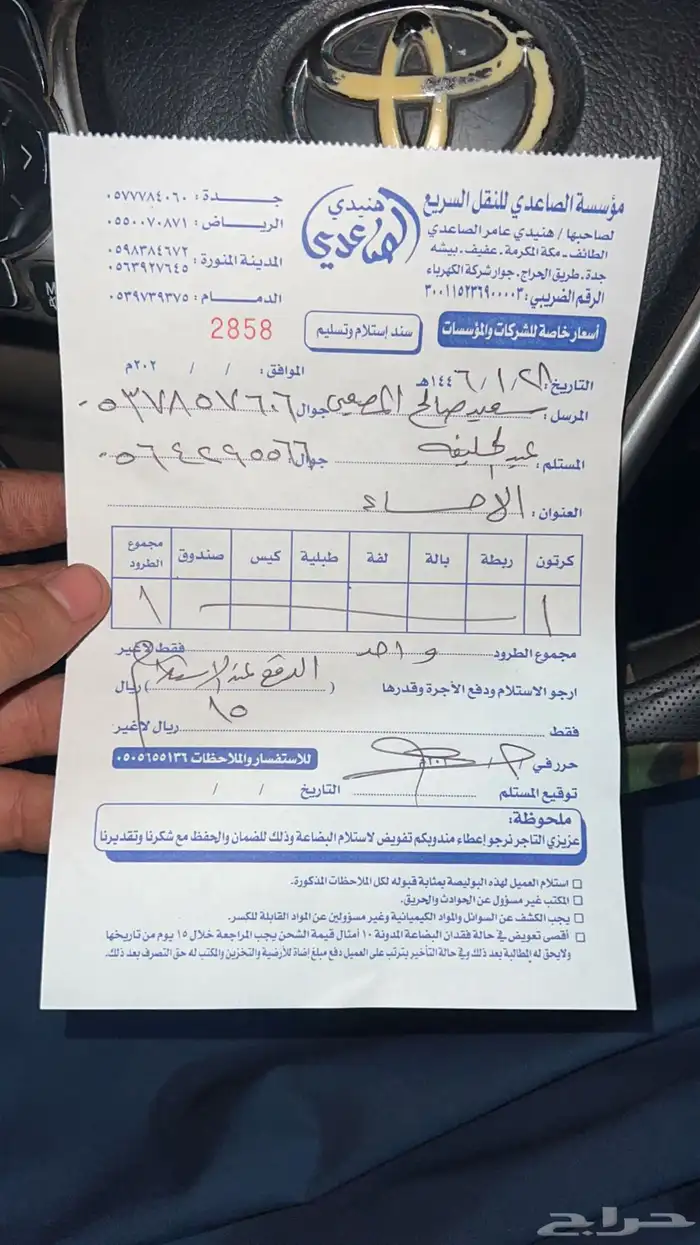 مؤسسة الصاعدي للنقل السريع
لصاحبها / هنيدي عامر الصاعدي
الطائف - مكة المكرمة - عفيف - بيشه
جدة - طريق الحراج - جوار شركة الكهرباء
الرقم الضريبي: ٣٠٠١١٥٢٣٦٩٠٠٠٠٣
هنيدي
الصاعدي
جدة: ٠٥٧٧٧٨٤٠٦٠
الرياض: ٠٥٥٠٠٧٠٨٧١
المدينة المنورة: ٠٥٩٨٣٨٤٦٧٢
٠٥٦٣٩٢٧٦٤٥
الدمام: ٠٥٣٩٧٣٩٣٧٥
أسعار خاصة للشركات والمؤسسات
سند إستلام وتسليم
2858
التاريخ: ٢٨ / ١ / ١٤٤٦هـ الموافق: / / ٢٠٢م
المرسل: سعيد صالح جوال: ٠٥٣٧٨٥٧٦٠٦
المستلم: جوال: ٠٥٦٤٢٩٥٥٦٦
العنوان: الاحساء
كرتون ربطة بالة لفة طبلية كيس صندوق مجموع الطرود
١ ١
مجموع الطرود واحد فقط لاغير
ارجو الاستلام ودفع الأجرة وقدرها ( الدفع عند الاستلام ) ريال
١٥
فقط ريال لاغير
حرر في للاستفسار والملاحظات ٠٥٠٥٦٥٥١٣٦
توقيع المستلم التاريخ / /
ملحوظة:
عزيزي التاجر نرجو إعطاء مندوبكم تفويض لاستلام البضاعة وذلك للضمان والحفظ مع شكرنا وتقديرنا
استلام العميل لهذه البوليصة بمثابة قبوله لكل الملاحظات المذكورة.
المكتب غير مسؤول عن الحوادث والحريق.
يجب الكشف عن السوائل والمواد الكيميائية وغير مسؤولين عن المواد القابلة للكسر.
أقصى تعويض في حالة فقدان البضاعة المدونة ١٠ أمثال قيمة الشحن يجب المراجعة خلال ١٥ يوم من تاريخها
ولايحق له المطالبة بعد ذلك وفي حالة التأخير يترتب على العميل دفع مبلغ إضافة للأرضية والتخزين والمكتب له حق التصرف بعد ذلك.
حراج